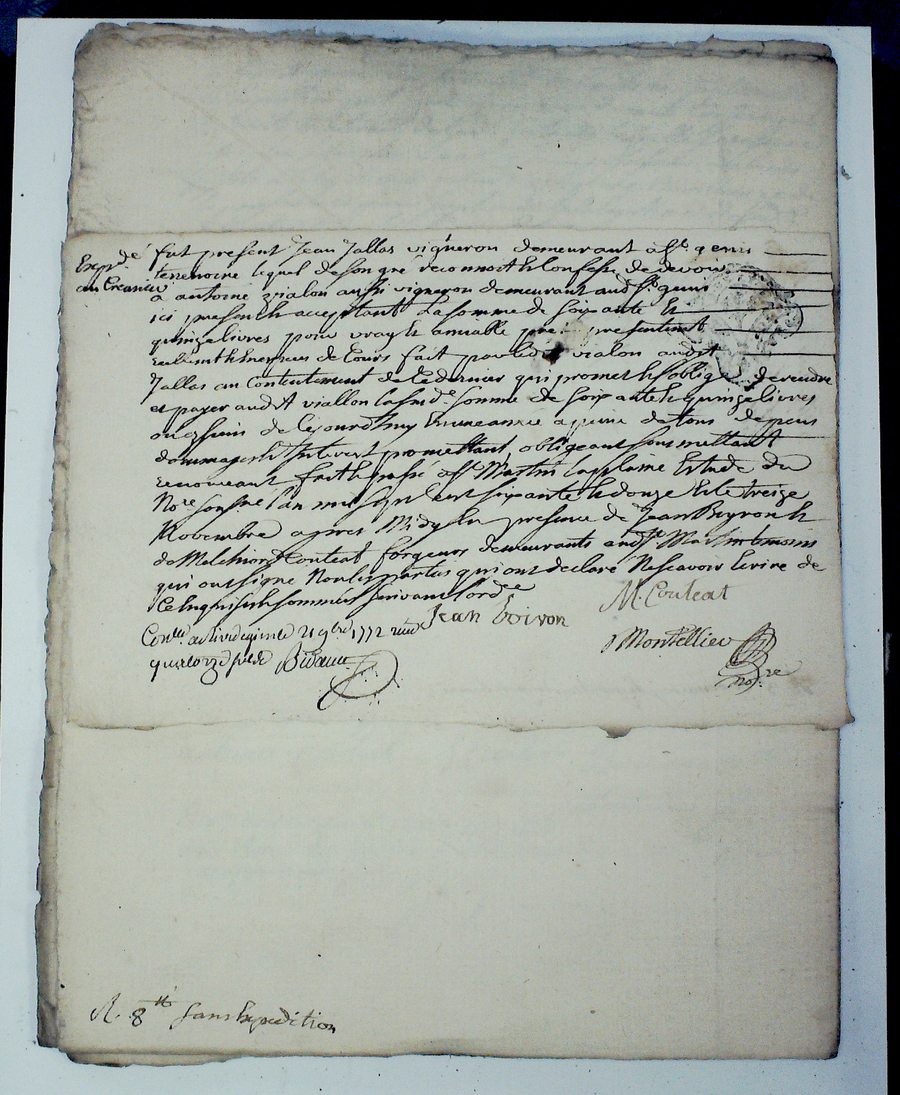 Exp.dé
au Creancier
fut present Jean Jallas vigneron demeurant a St. genis
terrenoire lequel de son gré reconnoit & confesse devoir
a antoine vialon aussi vigneron demeurant aud St. genis
ici present & acceptant La somme de soixante &
quinze livres pour vray & amiable pret presentement
reellement & en especes de Cours fait par led vialon audit
Jallas au Contentement de Ce dernier qui promet & s'oblige de rendre
et payer audit viallon lasusd.e somme de soixante & quinze livres
du jourdhuy en une année a peine de tous depens
dommages & Interest promettant obligeant soumettant
renonceant fait & passé a St. Martin Laplaine Etude du
No.re soussigné L'an mil sept Cent soixante & douze & le treize
Novembre apres Midy En presence de Jean Boyron &
de Melchior Couteat forgeurs demeurants aud St. Martin temoins
qui ont signé Non les parties qui ont declaré Ne scavoir Ecrire de
Ce Enquises & sommées suivant l'ord.e
M. Couteat
Jean boiron
Con.lle a Rivedegier le 21 9bre 1772 reçu
quatorze sols
Montellier
no.re
R. 8 tt sans Expedition